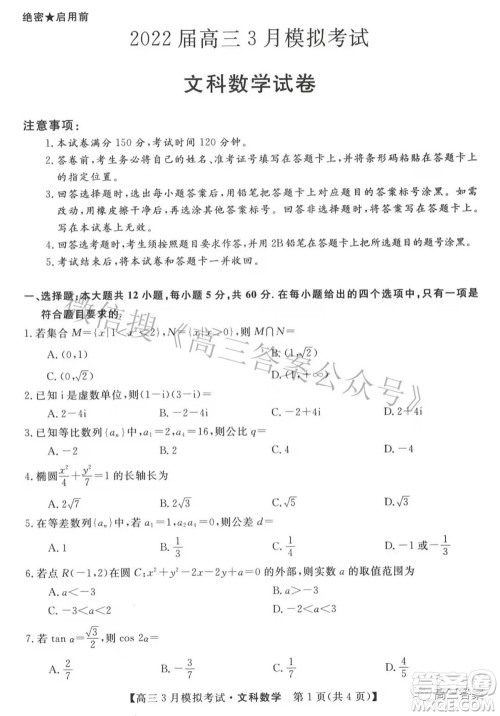 绝密★启用前
2022 届高三 3 月模拟考试
文科数学试卷
注意事项:
1. 本试卷满分 150 分,考试时间 120 分钟。
2. 答卷前,考生务必将自己的姓名、准考证号填写在答题卡上,并将条形码粘贴在答题卡上
的指定位置。
3. 回答选择题时,选出每小题答案后,用2B铅笔把答题卡上对应题目的答案标号涂黑。如需改
动,用橡皮擦干净后,再选涂其他答案标号。回答非选择题时,将答案写在答题卡上,写在
本试卷上无效。
4. 选考题的作答:先把所选题目的题号在答题卡上指定的位置用2B铅笔涂黑。
5. 考试结束后,将本试卷和答题卡一并交回。
一、选择题:本大题共 12 小题,每小题 5 分,共 60 分。在每小题给出的四个选项中,只有一项是
符合题目要求的。
1. 若集合 M={x|1<x²<2},N={x|x>0},则 M∩N=
A. (0,1) B. (1,√2)
C. (0,√2) D. (1,+∞)
2. 已知 i 是虚数单位,则(1-i)(1-3i)=
A. 2-4i B. -2-4i C. -2+4i D. 2+4i
3. 已知等比数列{aₙ},a₁=2,a₄=16,则公比 q=
A. 2 B. -2 C. 4 D. -4
4. 椭圆x²/4+y²/7=1 的长轴长为
A. 2√7 B. √7 C. 4 D. 2√3
5. 在等差数列{aₙ}中,若
A. 1 B. -1/3 C. 1/3 D. -1或-1/3
6. 若点 R(-1,2)在圆 C:x²+y²-2x+2y+a=0 的外部,则实数 a 的取值范围为
A. a<2 C. -3<a<2 D. -2<a<2
7. 若 tan α=√3/2,则 cos 2α=
A. 2/7 B. -1/7 C. 1/7 D. 4/7
【高三 3 月模拟考试·文科数学 第 1 页(共 4 页)】
微信搜《高三答案公众号》
高三答案